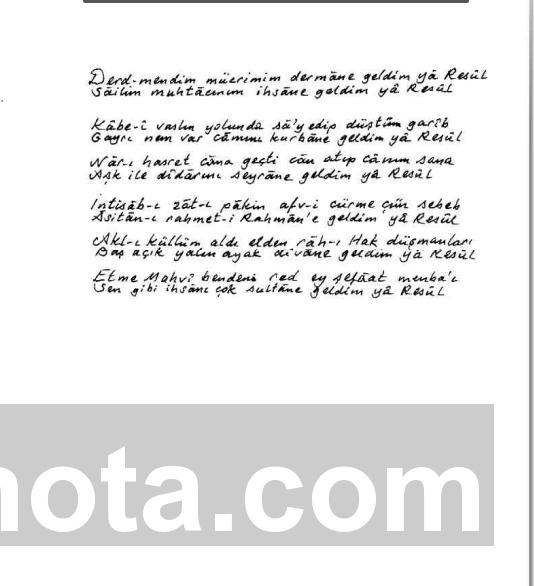 Derd-mendim mücrimim dermâne geldim yâ Resûl
Sâilim muhtâcınım ihsâne geldim yâ Resûl
Kâbe-î vaslın yolunda sâ'y edip düştüm garîb
Gayrı nem var cânımı kurbâne geldim yâ Resûl
Nâr-ı hasret câna geçti cân atıp cânım sana
Aşk ile dîdârını seyrâne geldim yâ Resûl
İntisâb-ı zât-ı pâkin afv-i cürme çün sebeb
Âsitân-ı rahmet-i Rahmân'e geldim yâ Resûl
Akl-ı küllüm aldı elden râh-ı Hak düşmanları
Baş açık yalın ayak dîvâne geldim yâ Resûl
Etme Mahvî bendeni red ey şefâat menba'ı
Sen gibi ihsânı çok sultâne geldim yâ Resûl
nota.com